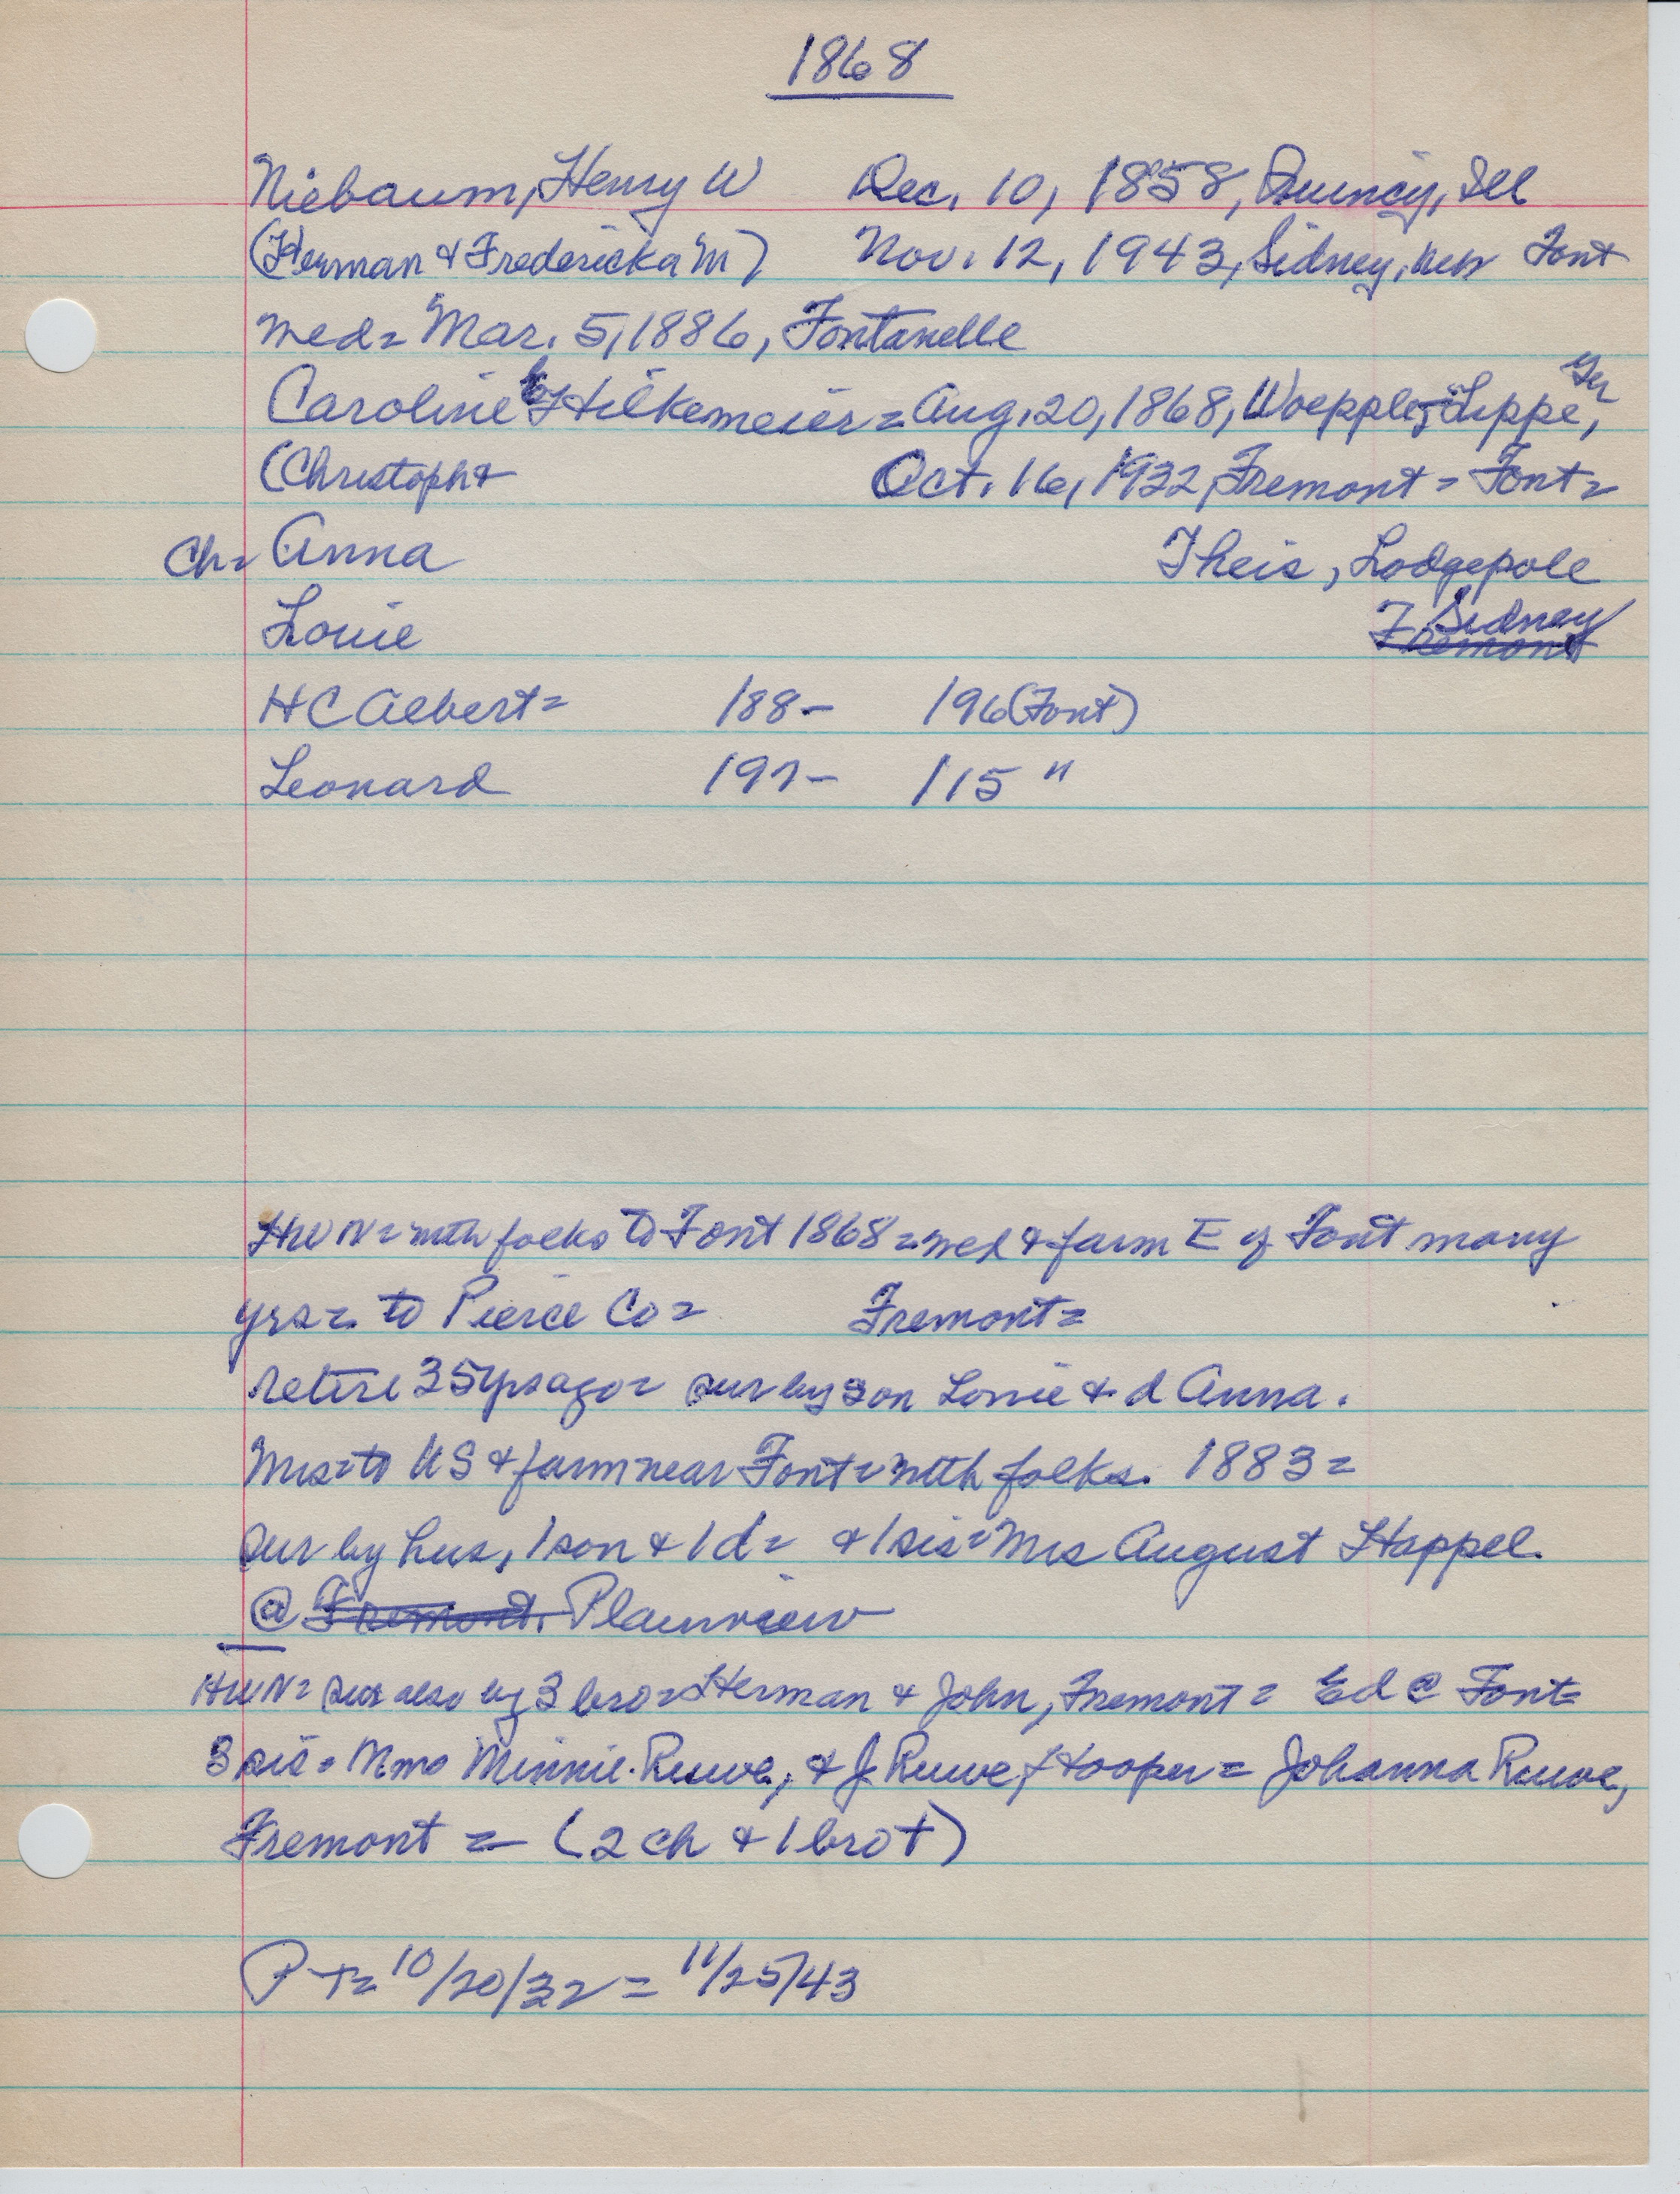 1868
Niebaum, Henry W Dec. 10, 1858, Quincy, Ill
(Herman & Fredericka M) Nov. 12, 1943, Sidney, Neb Font
Med= Mar. 5, 1886, Fontanelle
Caroline Hilkemeier= Aug. 20, 1868, Woepple, Lippe, Gr
(Christoph & Oct. 16, 1932, Fremont= Font=
Ch= Anna Theis, Lodgepole
Louie Fremont Sidney
H C Albert= 188- 196 (Font)
Leonard 197- 115 "
HWN= with folks to Font 1868= med & farm E of Font many
yrs= to Pierce Co= Fremont=
Retire 35 yrs ago= sur by son Louie & d Anna.
Mrs= to US & farm near Font= with folks. 1883=
Sur by hus, 1 son & 1 d= & 1 sis= Mrs August Happel
@ Fremont. Plainview
HWN= sur also by 3 bro= Herman & John, Fremont= Ed @ Font=
3 sis= Mmes Minnie Ruwe, & J Ruwe, Hooper= Johanna Ruwe,
Fremont= (2 ch & 1 bro †)
P T= 10/20/32= 11/25/43